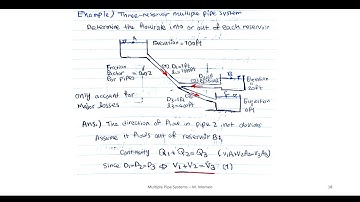 Example) Three-reservoir multiple pipe system
Determine the flowrate into or out of each reservoir
A
Elevation = 100ft
Friction
factor = 0.02
for pipes
(1) D1=1ft
l1=1000ft
B
Elevation
20ft
only account for
Major losses
D3=1ft
l3=400ft
Elevation
0ft
Ans.) The direction of flow in pipe 2 not obvious
Assume it flows out of reservoir B
Continuity Q1+Q2=Q3 (V1A1+V2A2=V3A3)
Since D1=D2=D3 ⇒ V1+V2=V3 (1)
Multiple Pipe Systems – M. Mamoo